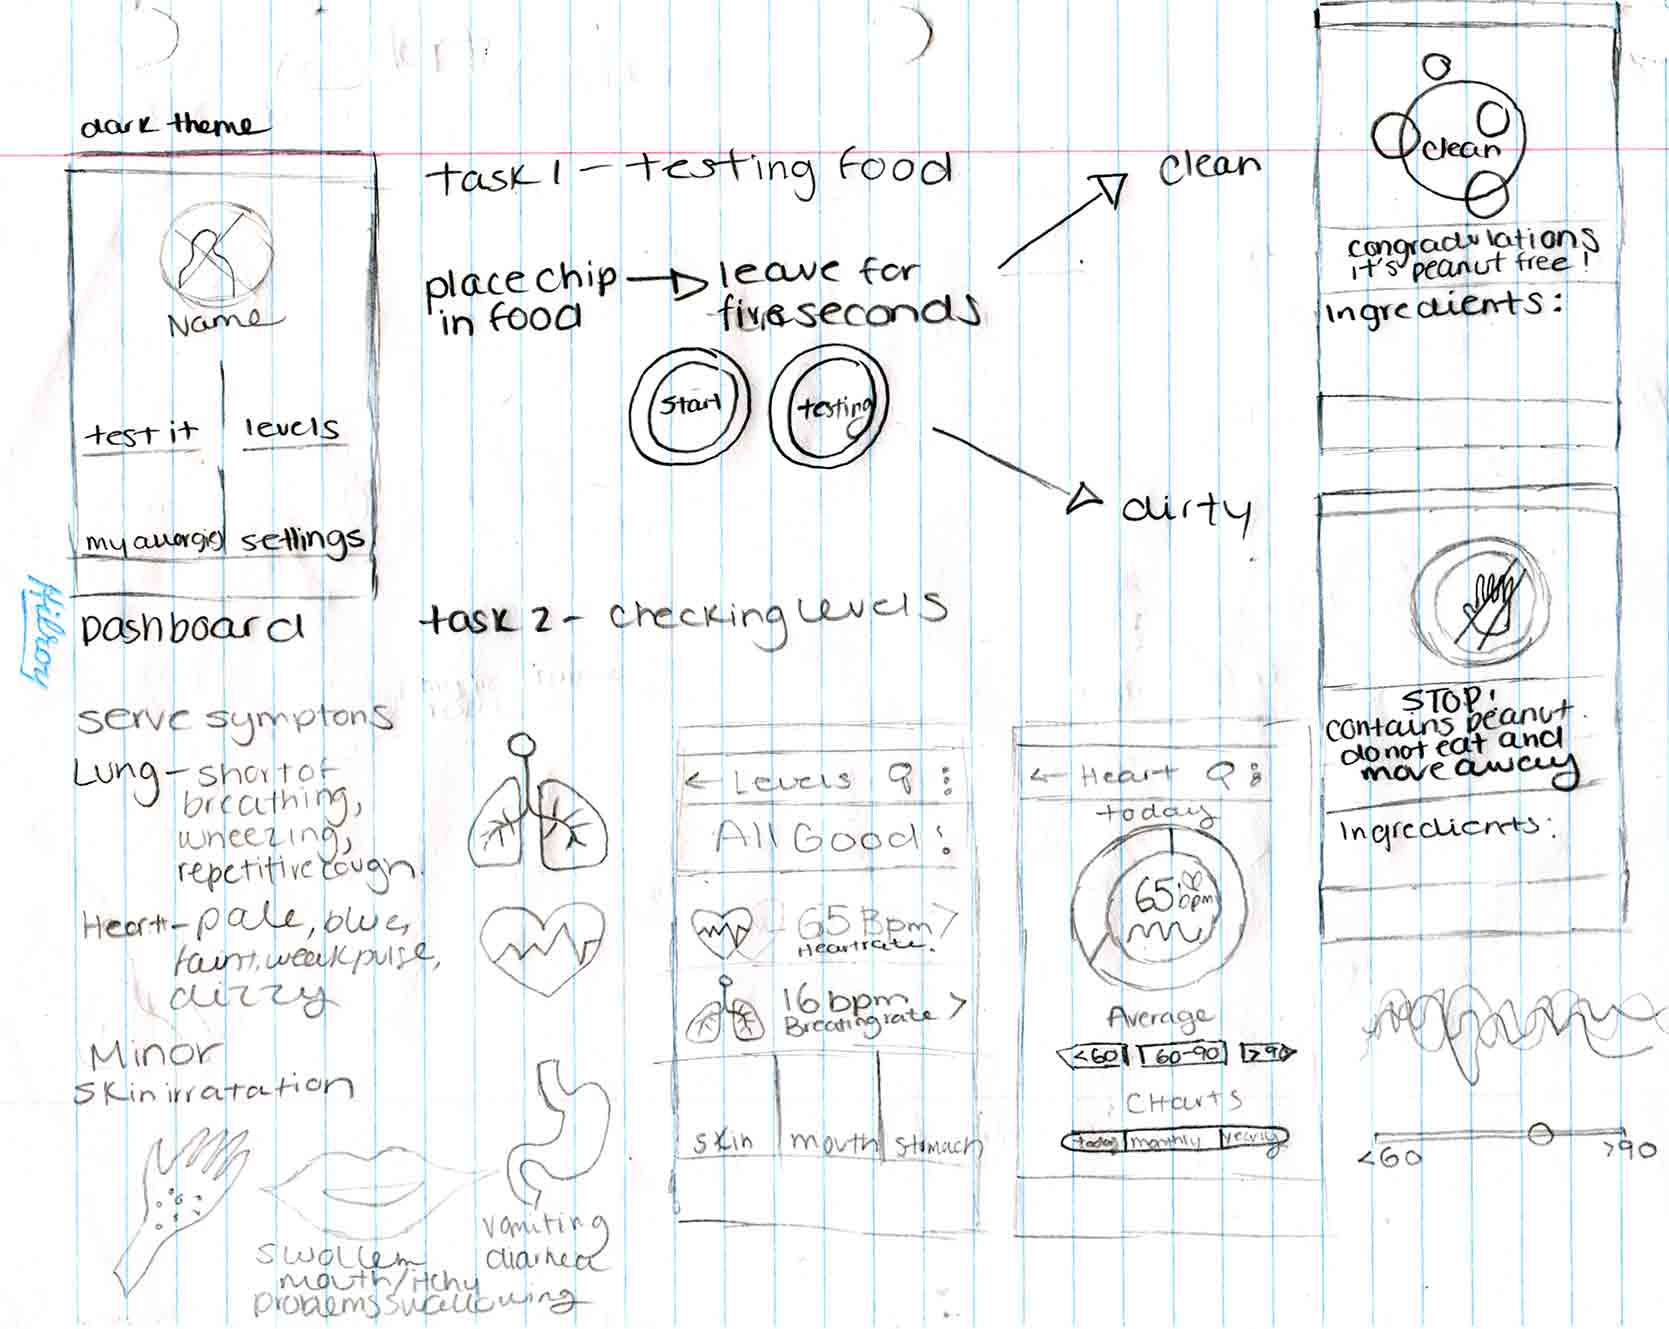 dark theme
Name
test it
levels
my allergies
settings
Dashboard
Hilroy
task 1 - testing food
place chip
in food
leave for
five seconds
start
testing
clean
dirty
clean
congradulations
it's peanut free!
Ingredients:
STOP!
contains peanut.
do not eat and
move away
Ingredients:
task 2 - checking levels
serve symptons
Lung - short of
breathing,
wheezing,
repetitive cough.
Heart - pale, blue,
faint, weak pulse,
dizzy
Minor
skin irratation
swollen
mouth/itchy
problems swallowing
vomiting
diarhea
← Levels
All Good
65 Bpm >
Heartrate.
16 bpm >
Breatingrate
skin
mouth
stomach
← Heart
today
65 bpm
Average
<60
60-90
>90
CHarts
today
monthly
yearly
<60
>90